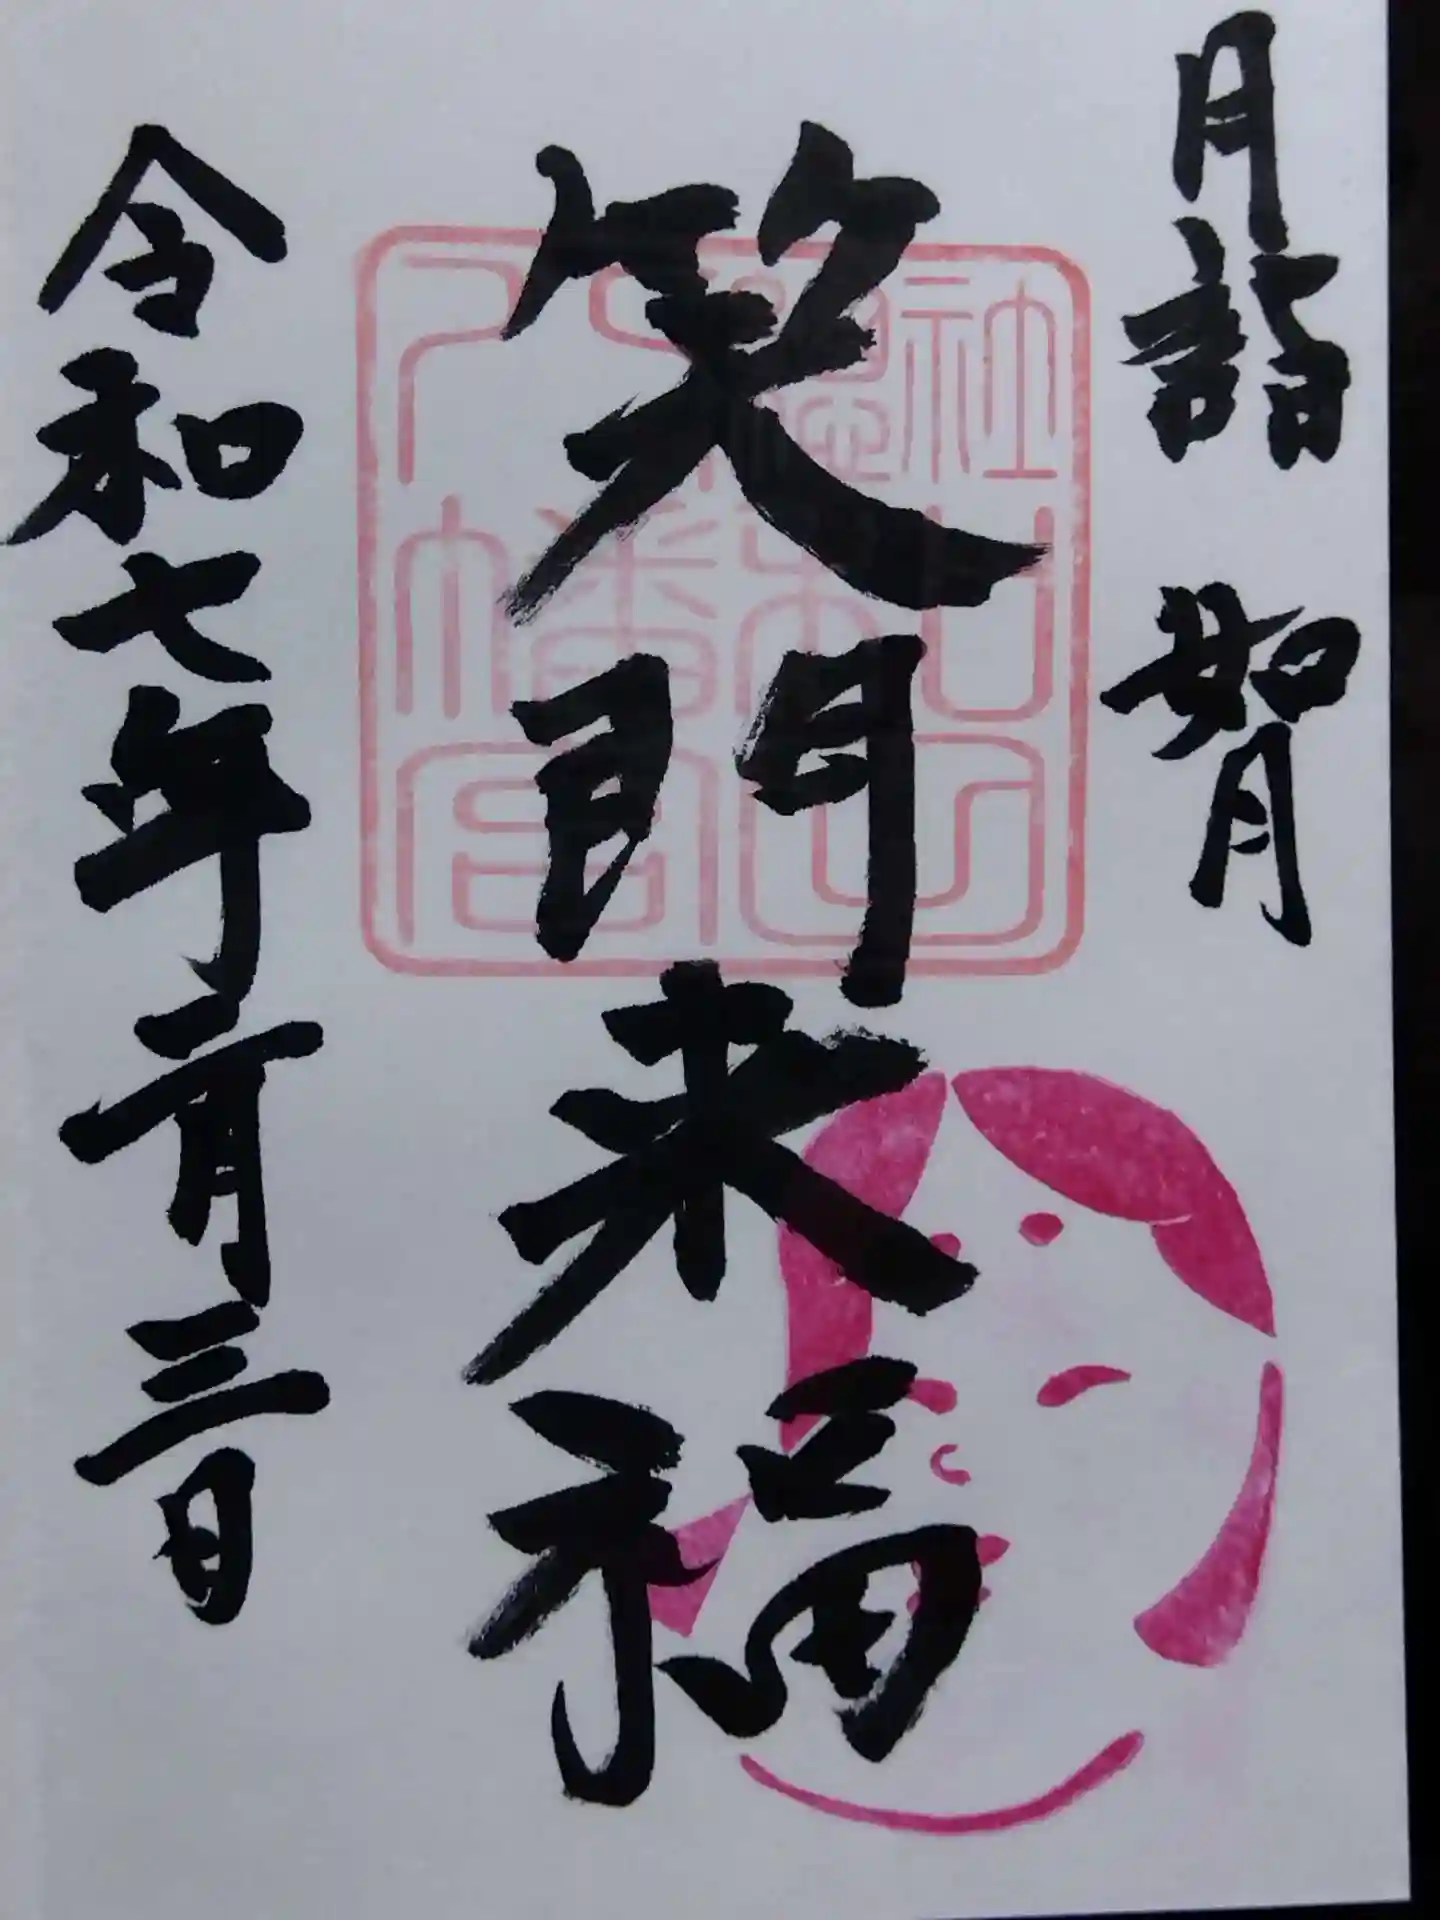 月詣 如月
笑門来福
令和七年二月三日
八幡宮